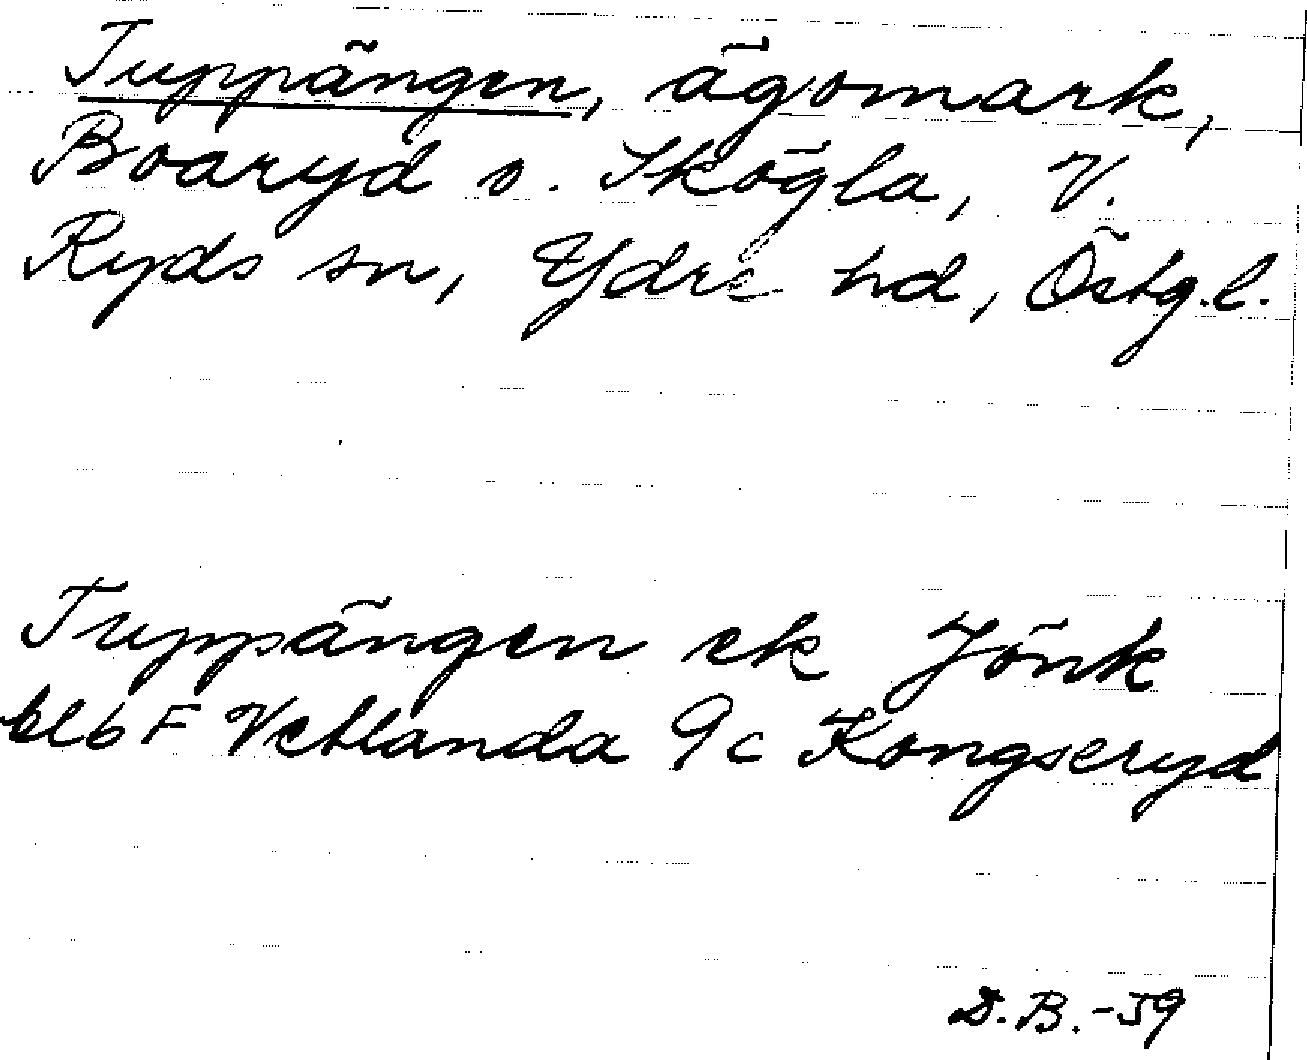 Tuppängen, ägomark,
Boaryd o. Skögla, V.
Ryds sn, Ydre hd, Östg.l.
Tuppängen ek Jönk
bl 6 F Vetlanda 9c Kongseryd
D.B.-59